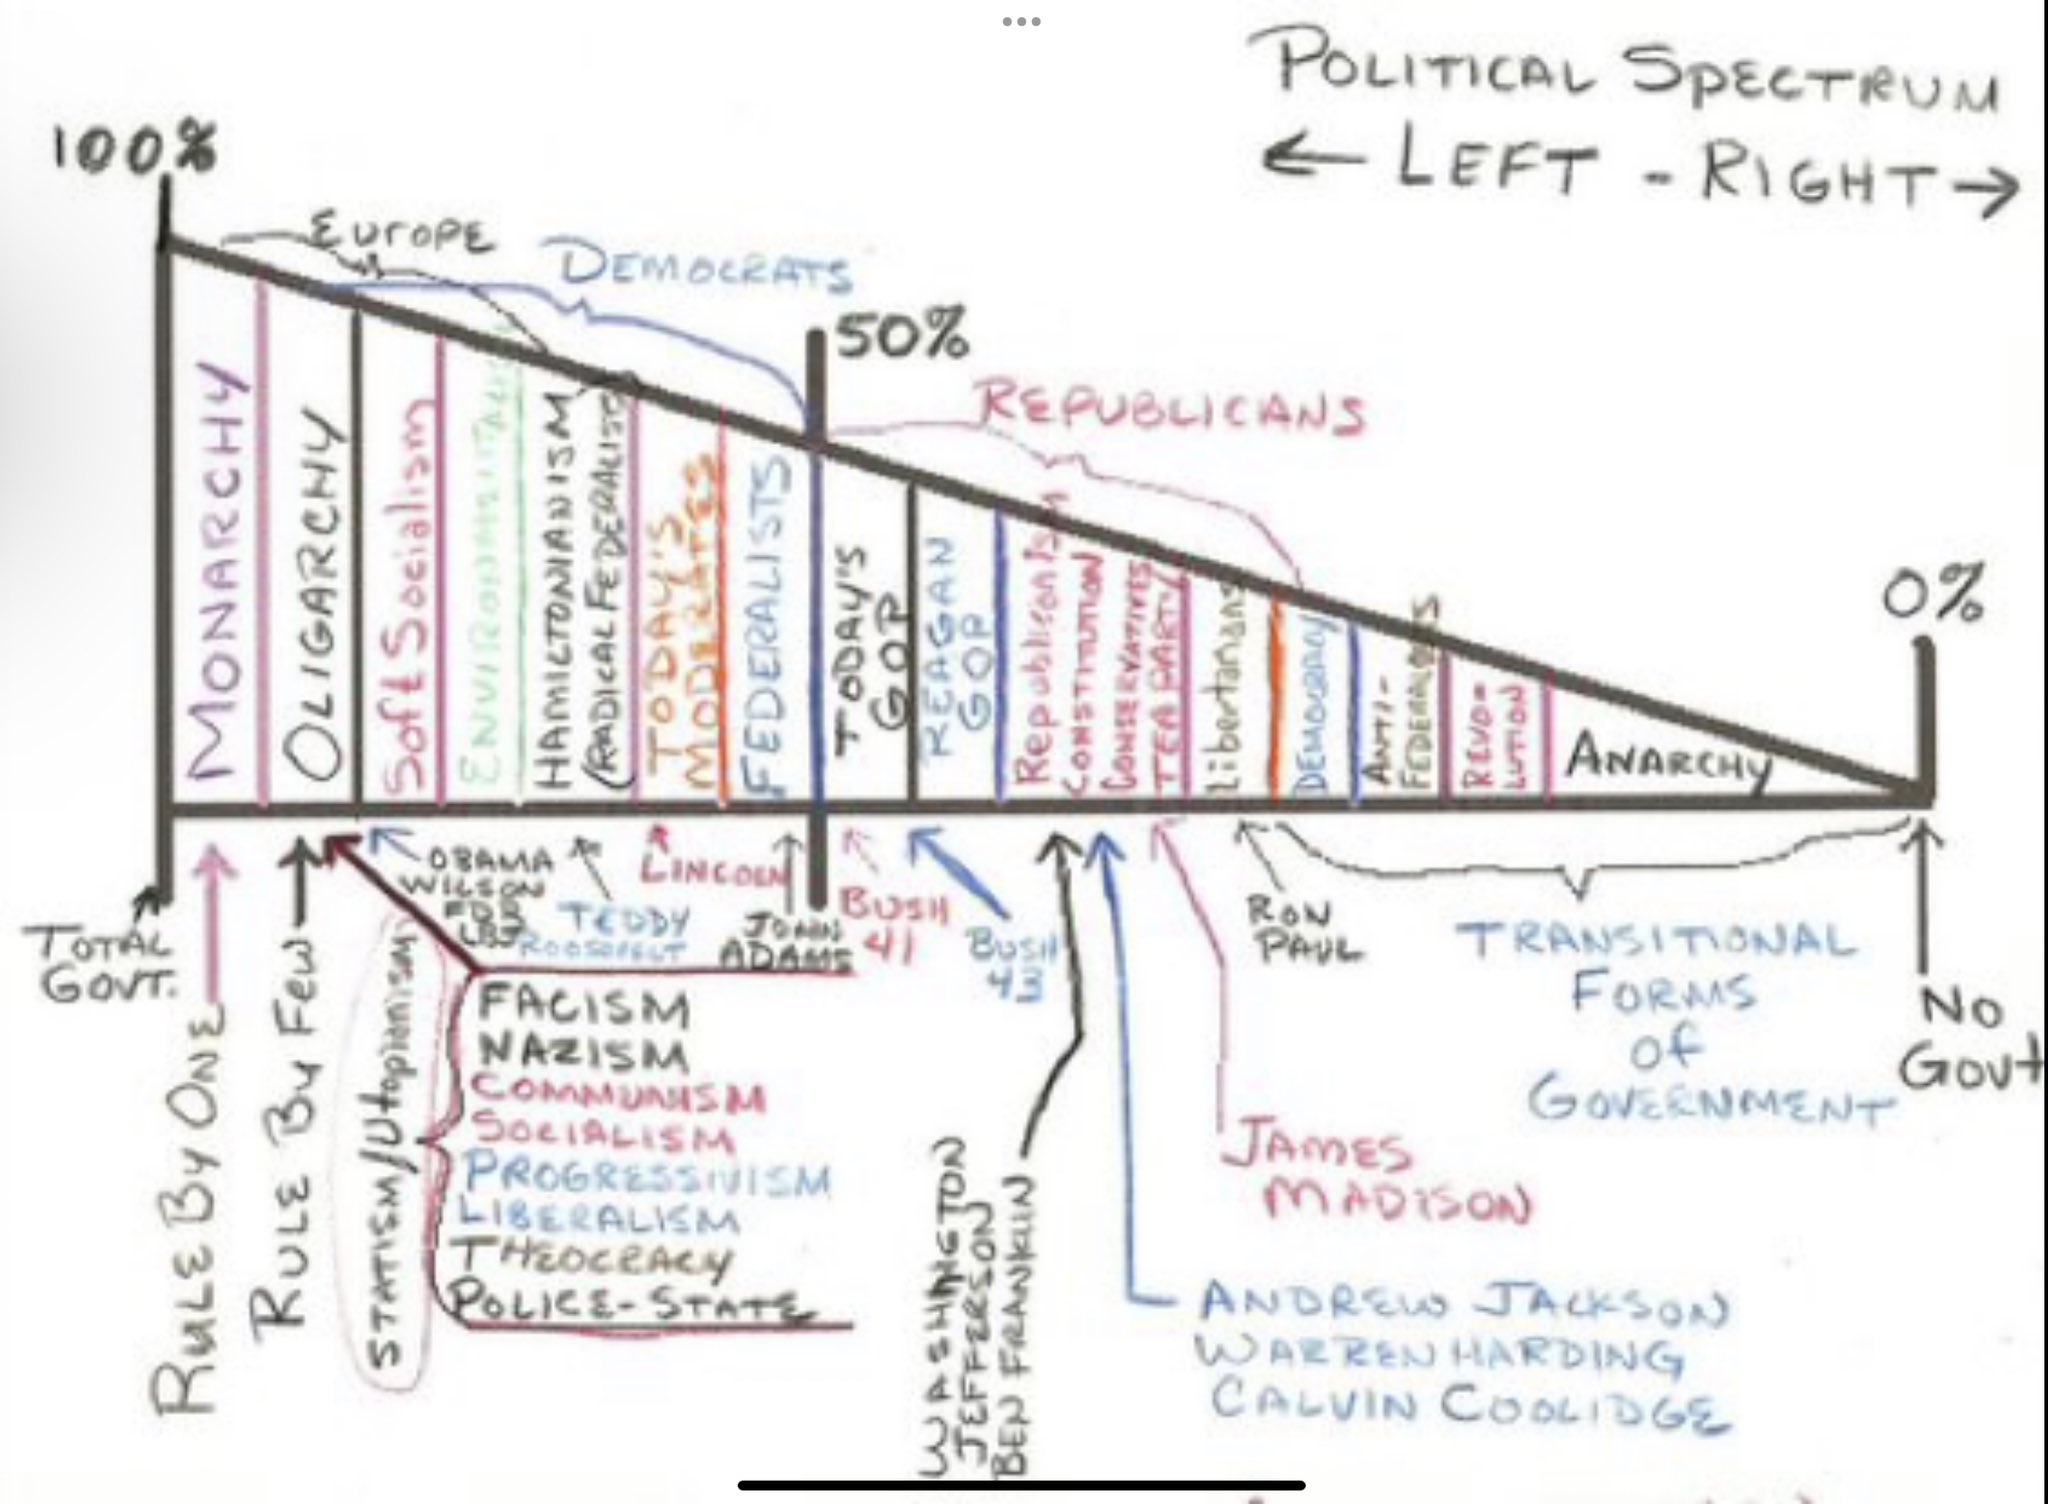 POLITICAL SPECTRUM
← LEFT - RIGHT →
100%
EUROPE
DEMOCRATS
50%
REPUBLICANS
0%
MONARCHY
OLIGARCHY
Soft Socialism
HAMILTONIANISM
(RADICAL FEDERALISTS
TODAY'S
MODERATES
FEDERALISTS
TODAY'S
GOP
REAGAN
GOP
Republicanism
CONSTITUTION
CONSERVATIVES
TEA PARTY
Libertarians
DEMOCRACY
ANTI-
FEDERALISTS
REVO-
LUTION
ANARCHY
TOTAL
GOVT.
RULE BY ONE
RULE BY FEW
OBAMA
WILSON
FDR
LBJ
TEDDY
ROOSEVELT
LINCOLN
JOHN
ADAMS
BUSH
41
BUSH
43
RON
PAUL
TRANSITIONAL
FORMS
OF
GOVERNMENT
NO
GOVT
STATISM/Utopianism
FACISM
NAZISM
COMMUNISM
SOCIALISM
PROGRESSIVISM
LIBERALISM
THEOCRACY
POLICE-STATE
WASHINGTON
JEFFERSON
BEN FRANKLIN
JAMES
MADISON
ANDREW JACKSON
WARREN HARDING
CALVIN COOLIDGE